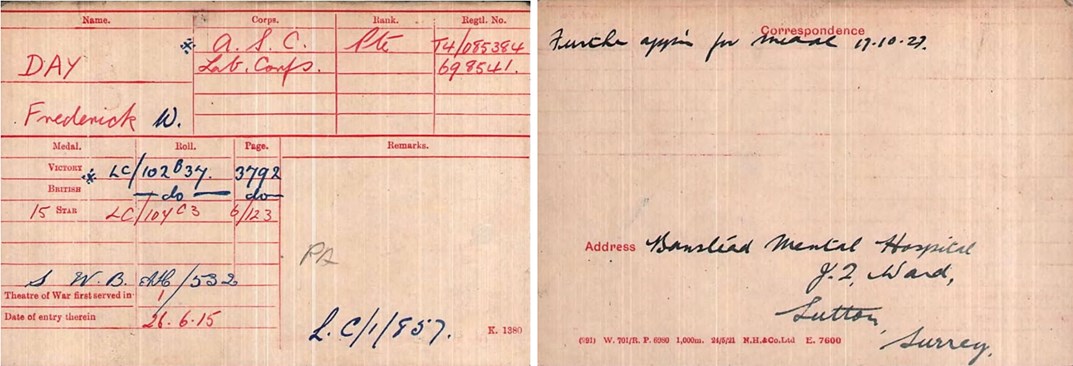 Name. Corps. Rank. Regtl. No.
DAY A. S. C. Pte T4/085384
Lab. Corps. 698541.
Frederick W.
Medal. Roll. Page. Remarks.
VICTORY LC/102B37. 3792
BRITISH do do
15 STAR LC/104C3 6/123
PA
S. W. B. /532
Theatre of War first served in 1
Date of entry therein 26.6.15
L.C/1/857.
K. 1380
Correspondence
Further appn for medal 17-10-27.
Address Banstead Mental Hospital
Ward,
Sutton,
Surrey.
W. 701/R. P. 6980 1,000m. 24/5/21 N.H.&Co.Ltd E. 7600